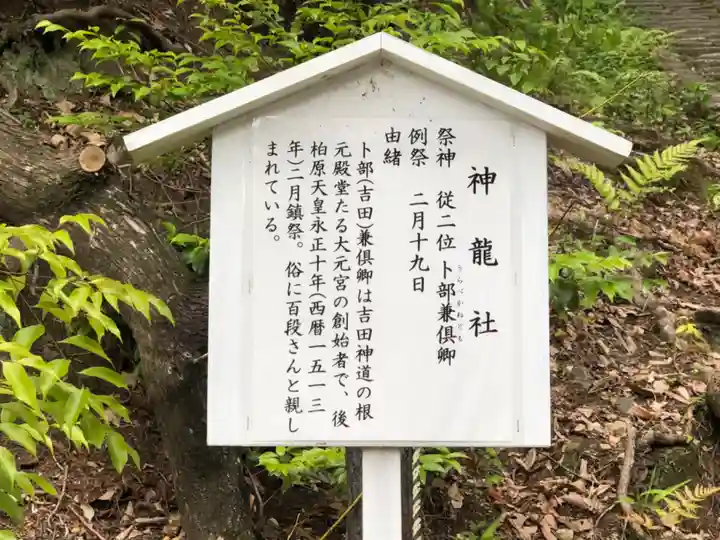 神龍社
祭神 従二位 卜部兼俱卿
うらべかねとも
例祭 二月十九日
由緒
卜部(吉田)兼俱卿は吉田神道の根
元殿堂たる大元宮の創始者で、後
柏原天皇永正十年(西暦一五一三
年)二月鎮祭。俗に百段さんと親し
まれている。